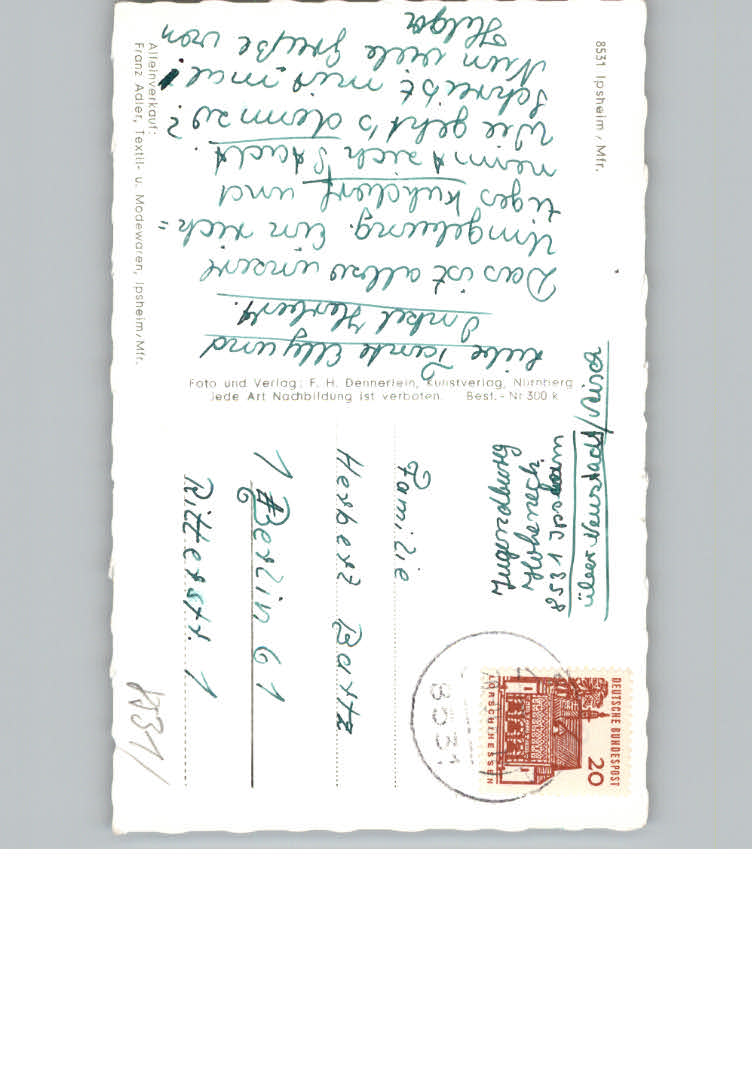 8531 Ipsheim / Mfr.
Liebe Tante Elly und
Onkel Herbert.
Das ist also unsere
Umgebung. Ein rich=
tiges Kuhdorf und
nennt sich Stadt.
Wie geht's denn so?
Schreibt mir mal!
Nun viele Grüße von
Helga
Alleinverkauf:
Franz Adler, Textil- u. Modewaren, Ipsheim/Mfr.
Foto und Verlag: F. H. Dennerlein, Kunstverlag, Nürnberg
Jede Art Nachbildung ist verboten. Best.-Nr 300 k
Jugendburg
Hoheneck
8531 Ipsheim
über Neustadt/Aisch
DEUTSCHE BUNDESPOST
20
LORSCH/HESSEN
8531
Familie
Herbert Bartz
1 Berlin 61
Ritterstr. 1
8531/